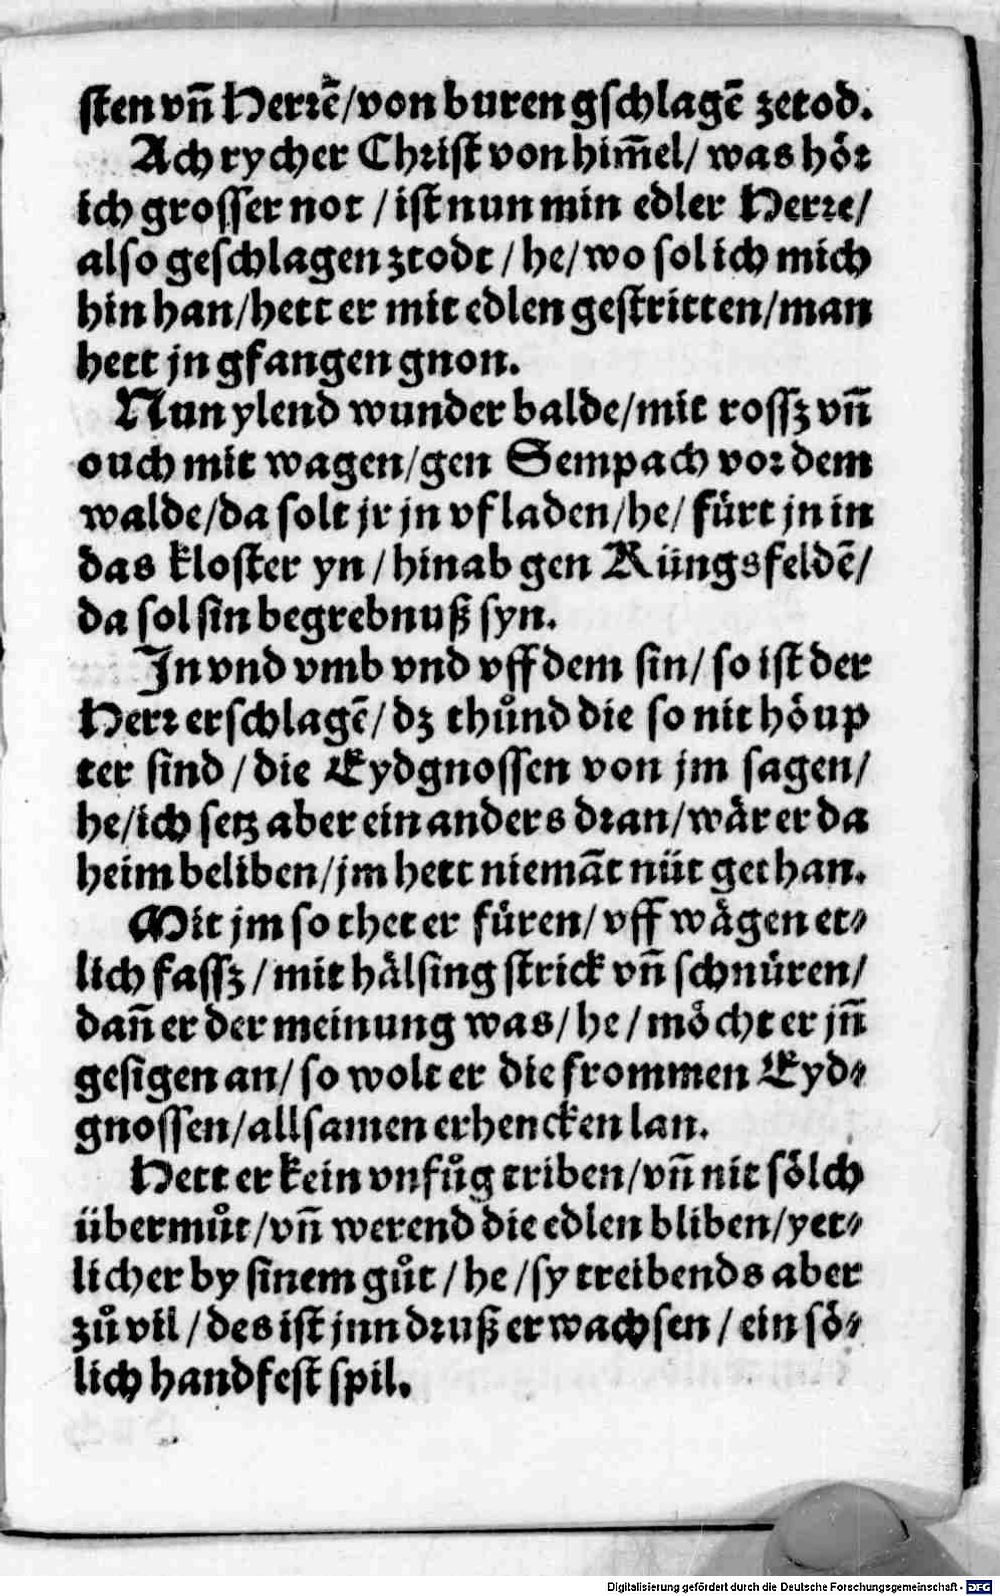 sten vñ Herrē/von buren gschlagē zetod.
Ach rycher Christ von him̃el/ was hör
ich grosser not / ist nun min edler Herre/
also geschlagen ztodt / he/ wo sol ich mich
hin han/hett er mit edlen gestritten/man
hett jn gfangen gnon.
Nun ylend wunder balde/mit rossz vñ
ouch mit wagen/gen Sempach vor dem
walde/da solt jr jn vf laden/he/ fürt jn in
das kloster yn / hinab gen Küngsfeldē/
da sol sin begrebnuß syn.
In vnd vmb vnd vff dem sin/ so ist der
Herr erschlagē/ dz thůnd die so nit höup
ter sind / die Eydgnossen von jm sagen/
he/ich setz aber ein anders dran/wär er da
heim beliben/jm hett niemāt nüt gethan.
Mit jm so thet er füren/ vff wägen et⸗
lich fassz / mit hälsing strick vñ schnüren/
dañ er der meinung was/ he / möcht er jñ
gesigen an/ so wolt er die frommen Eyd⸗
gnossen/allsamen erhencken lan.
Hett er kein vnfůg triben/vñ nit sölch
übermůt/vñ werend die edlen bliben/yet⸗
licher by sinem gůt / he /sy treibends aber
zů vil / des ist jnn druß erwachsen / ein sö⸗
lich handfest spil.
Digitalisierung gefördert durch die Deutsche Forschungsgemeinschaft - DFG